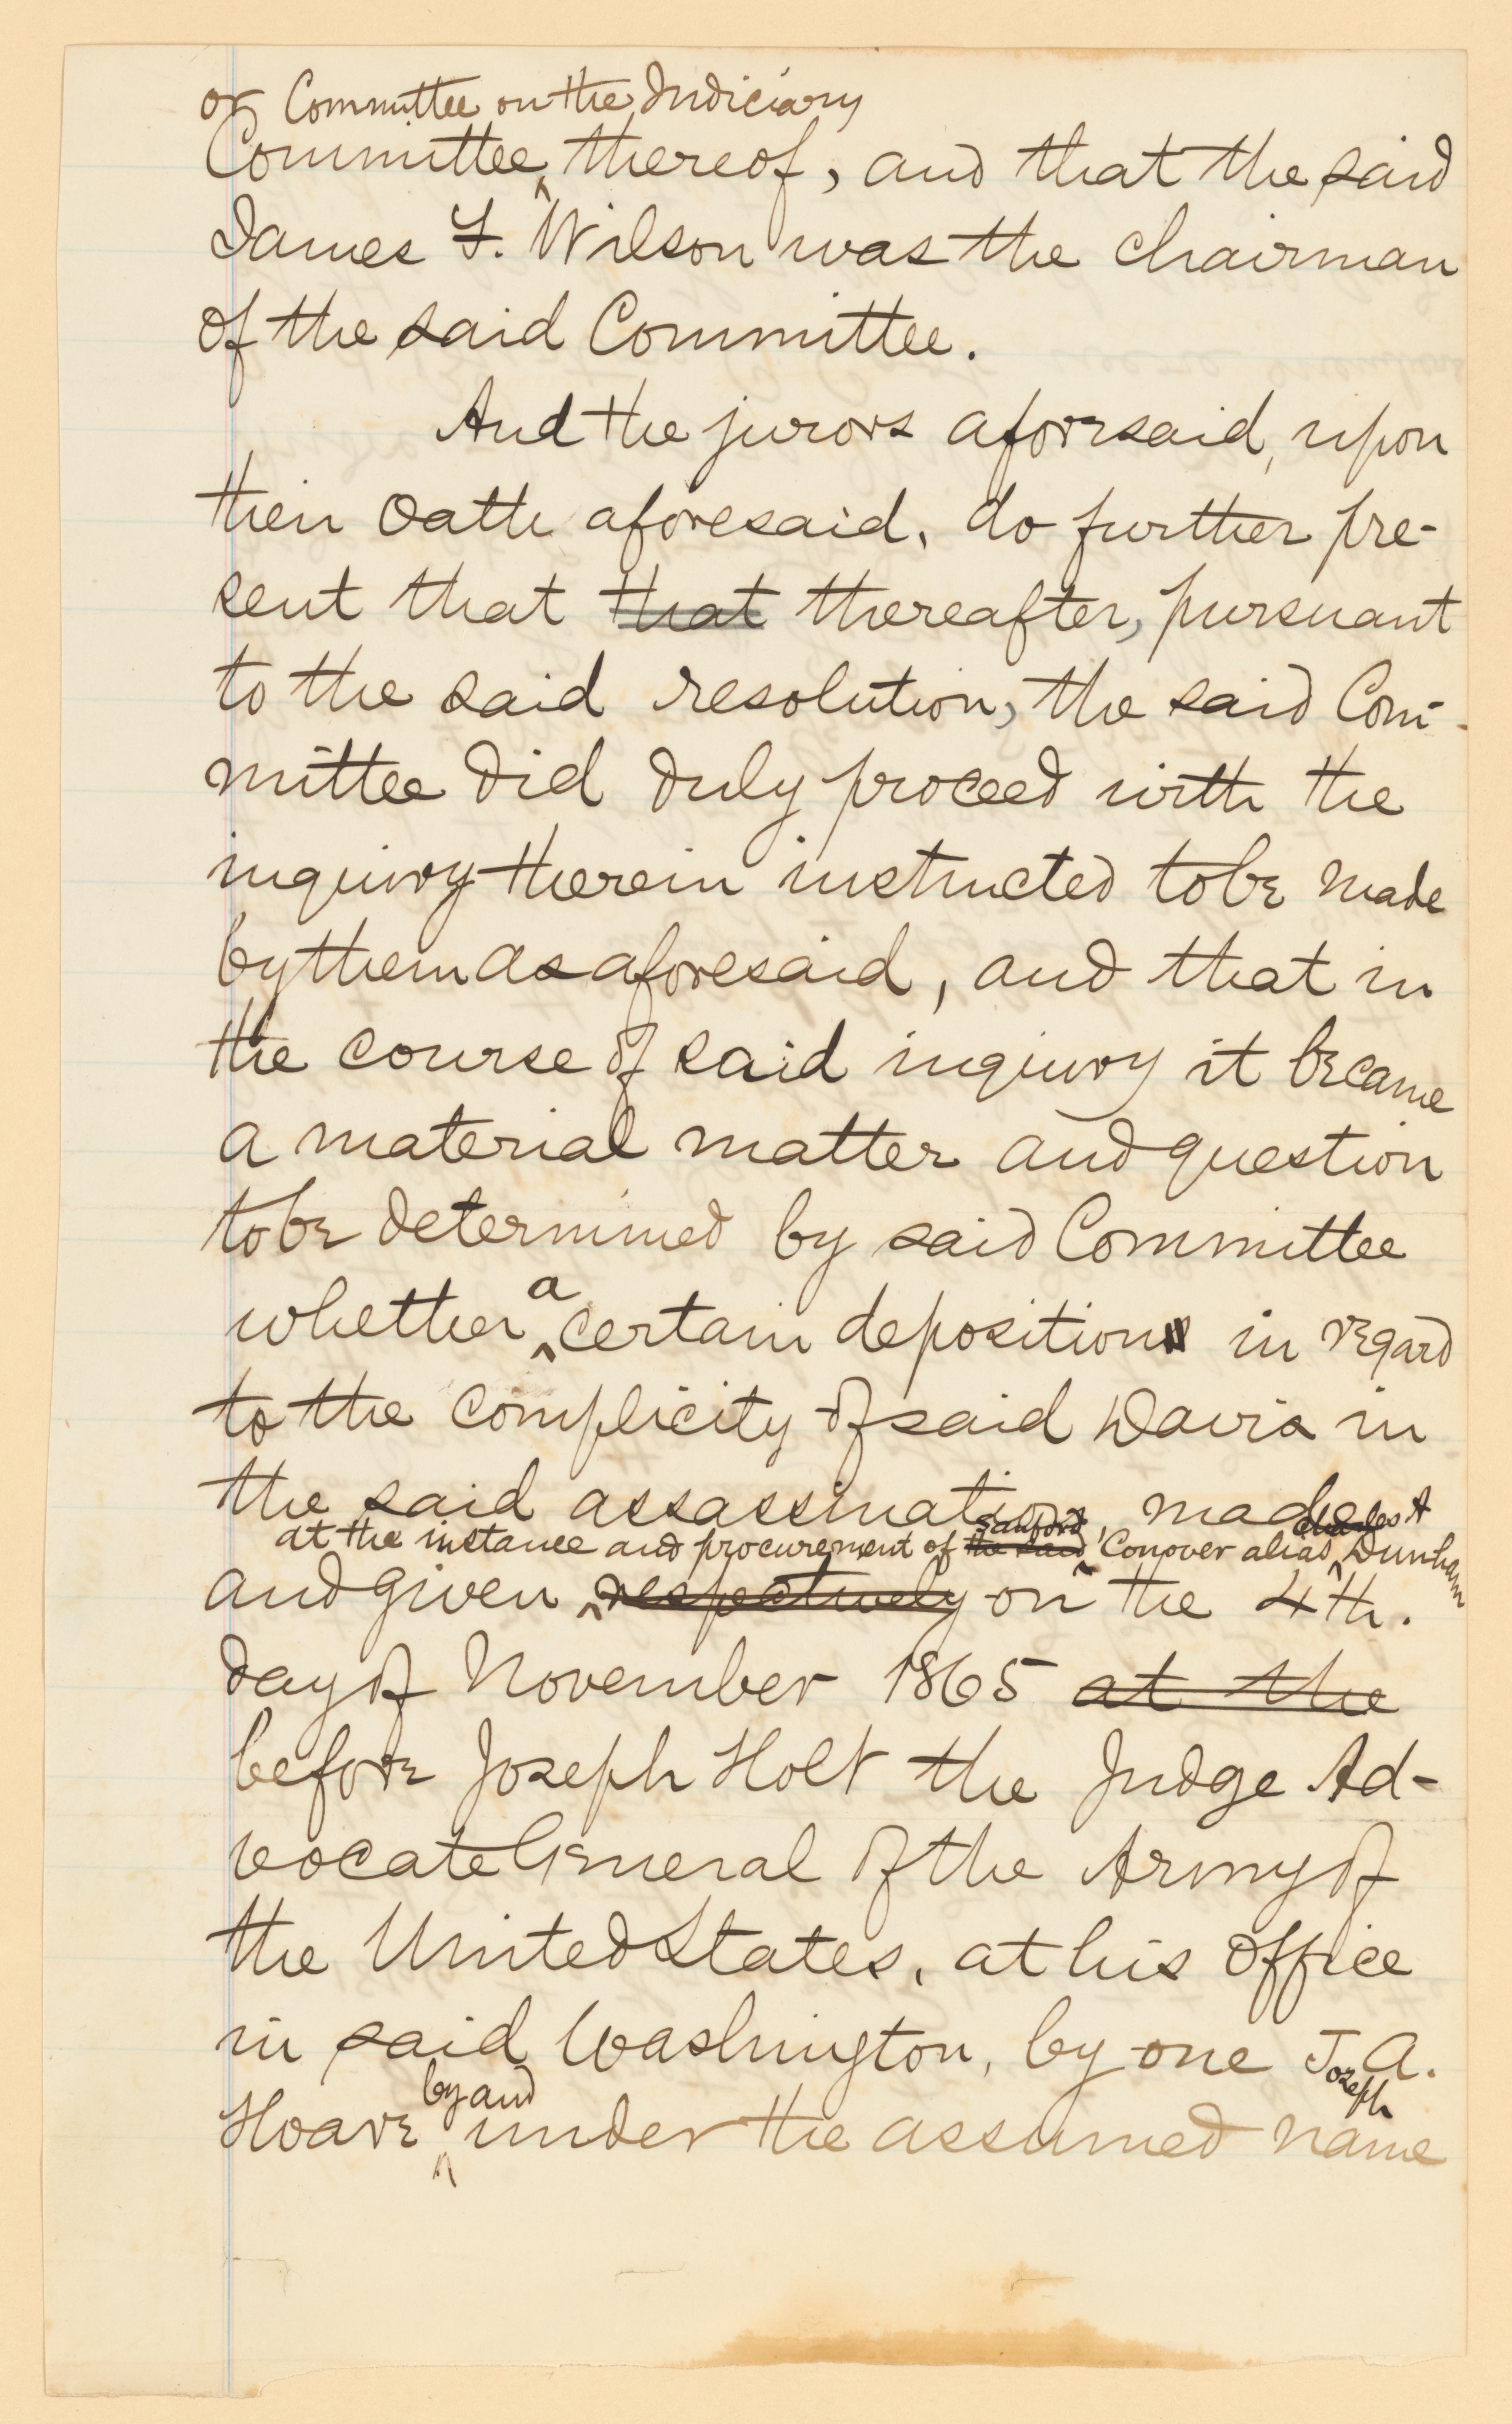 or Committee on the Judiciary
Committee, thereof, and that the said
James F. Wilson was the chairman
of the said Committee.
And the jurors aforesaid, upon
their Oath aforesaid, do further pre-
sent that that thereafter, pursuant
to the said resolution, the said Com-
mittee did duly proceed with the
inquiry therein instructed to be made
by them as aforesaid, and that in
the course of said inquiry it became
a material matter and question
to be determined by said Committee
a
whether certain depositions in regard
to the complicity of said Davis in
the said assassination, made
Sanford Charles A
at the instance and procurement of the said Conover alias Dunham
and given respectively on the 4th.
day of November 1865 at the
before Joseph Holt the Judge Ad-
vocate General of the Army of
the United States, at his office
in said Washington, by one J. A.
by and Joseph
Hoare under the assumed name